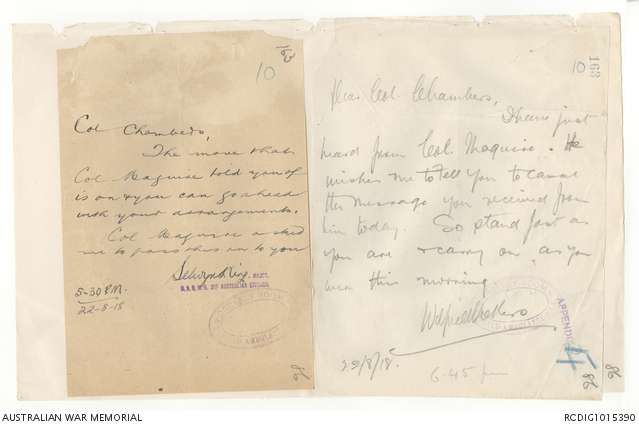 10
Col Chambers,
The move that
Col Maguire told you of
is on & you can go ahead
with your arrangements.
Col Maguire asked
me to pass this on to you
Selwyn King MAJOR.
AUSTRALIAN DIVISION
5-30 P.M.
22-8-18
98
163
10
Dear Col Chambers,
I have just
heard from Col. Maguire. He
wishes me to tell you to cancel
the message you received from
him today. So stand just as
you are & carry on as you
were this morning
22/8/18.
6.45 pm
APPENDIX
98
98
AUSTRALIAN WAR MEMORIAL
RCDIG1015390